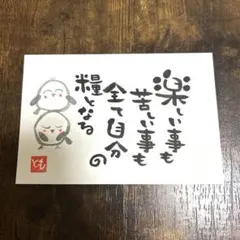 楽しい事も
苦しい事も
全て自分の
糧となる